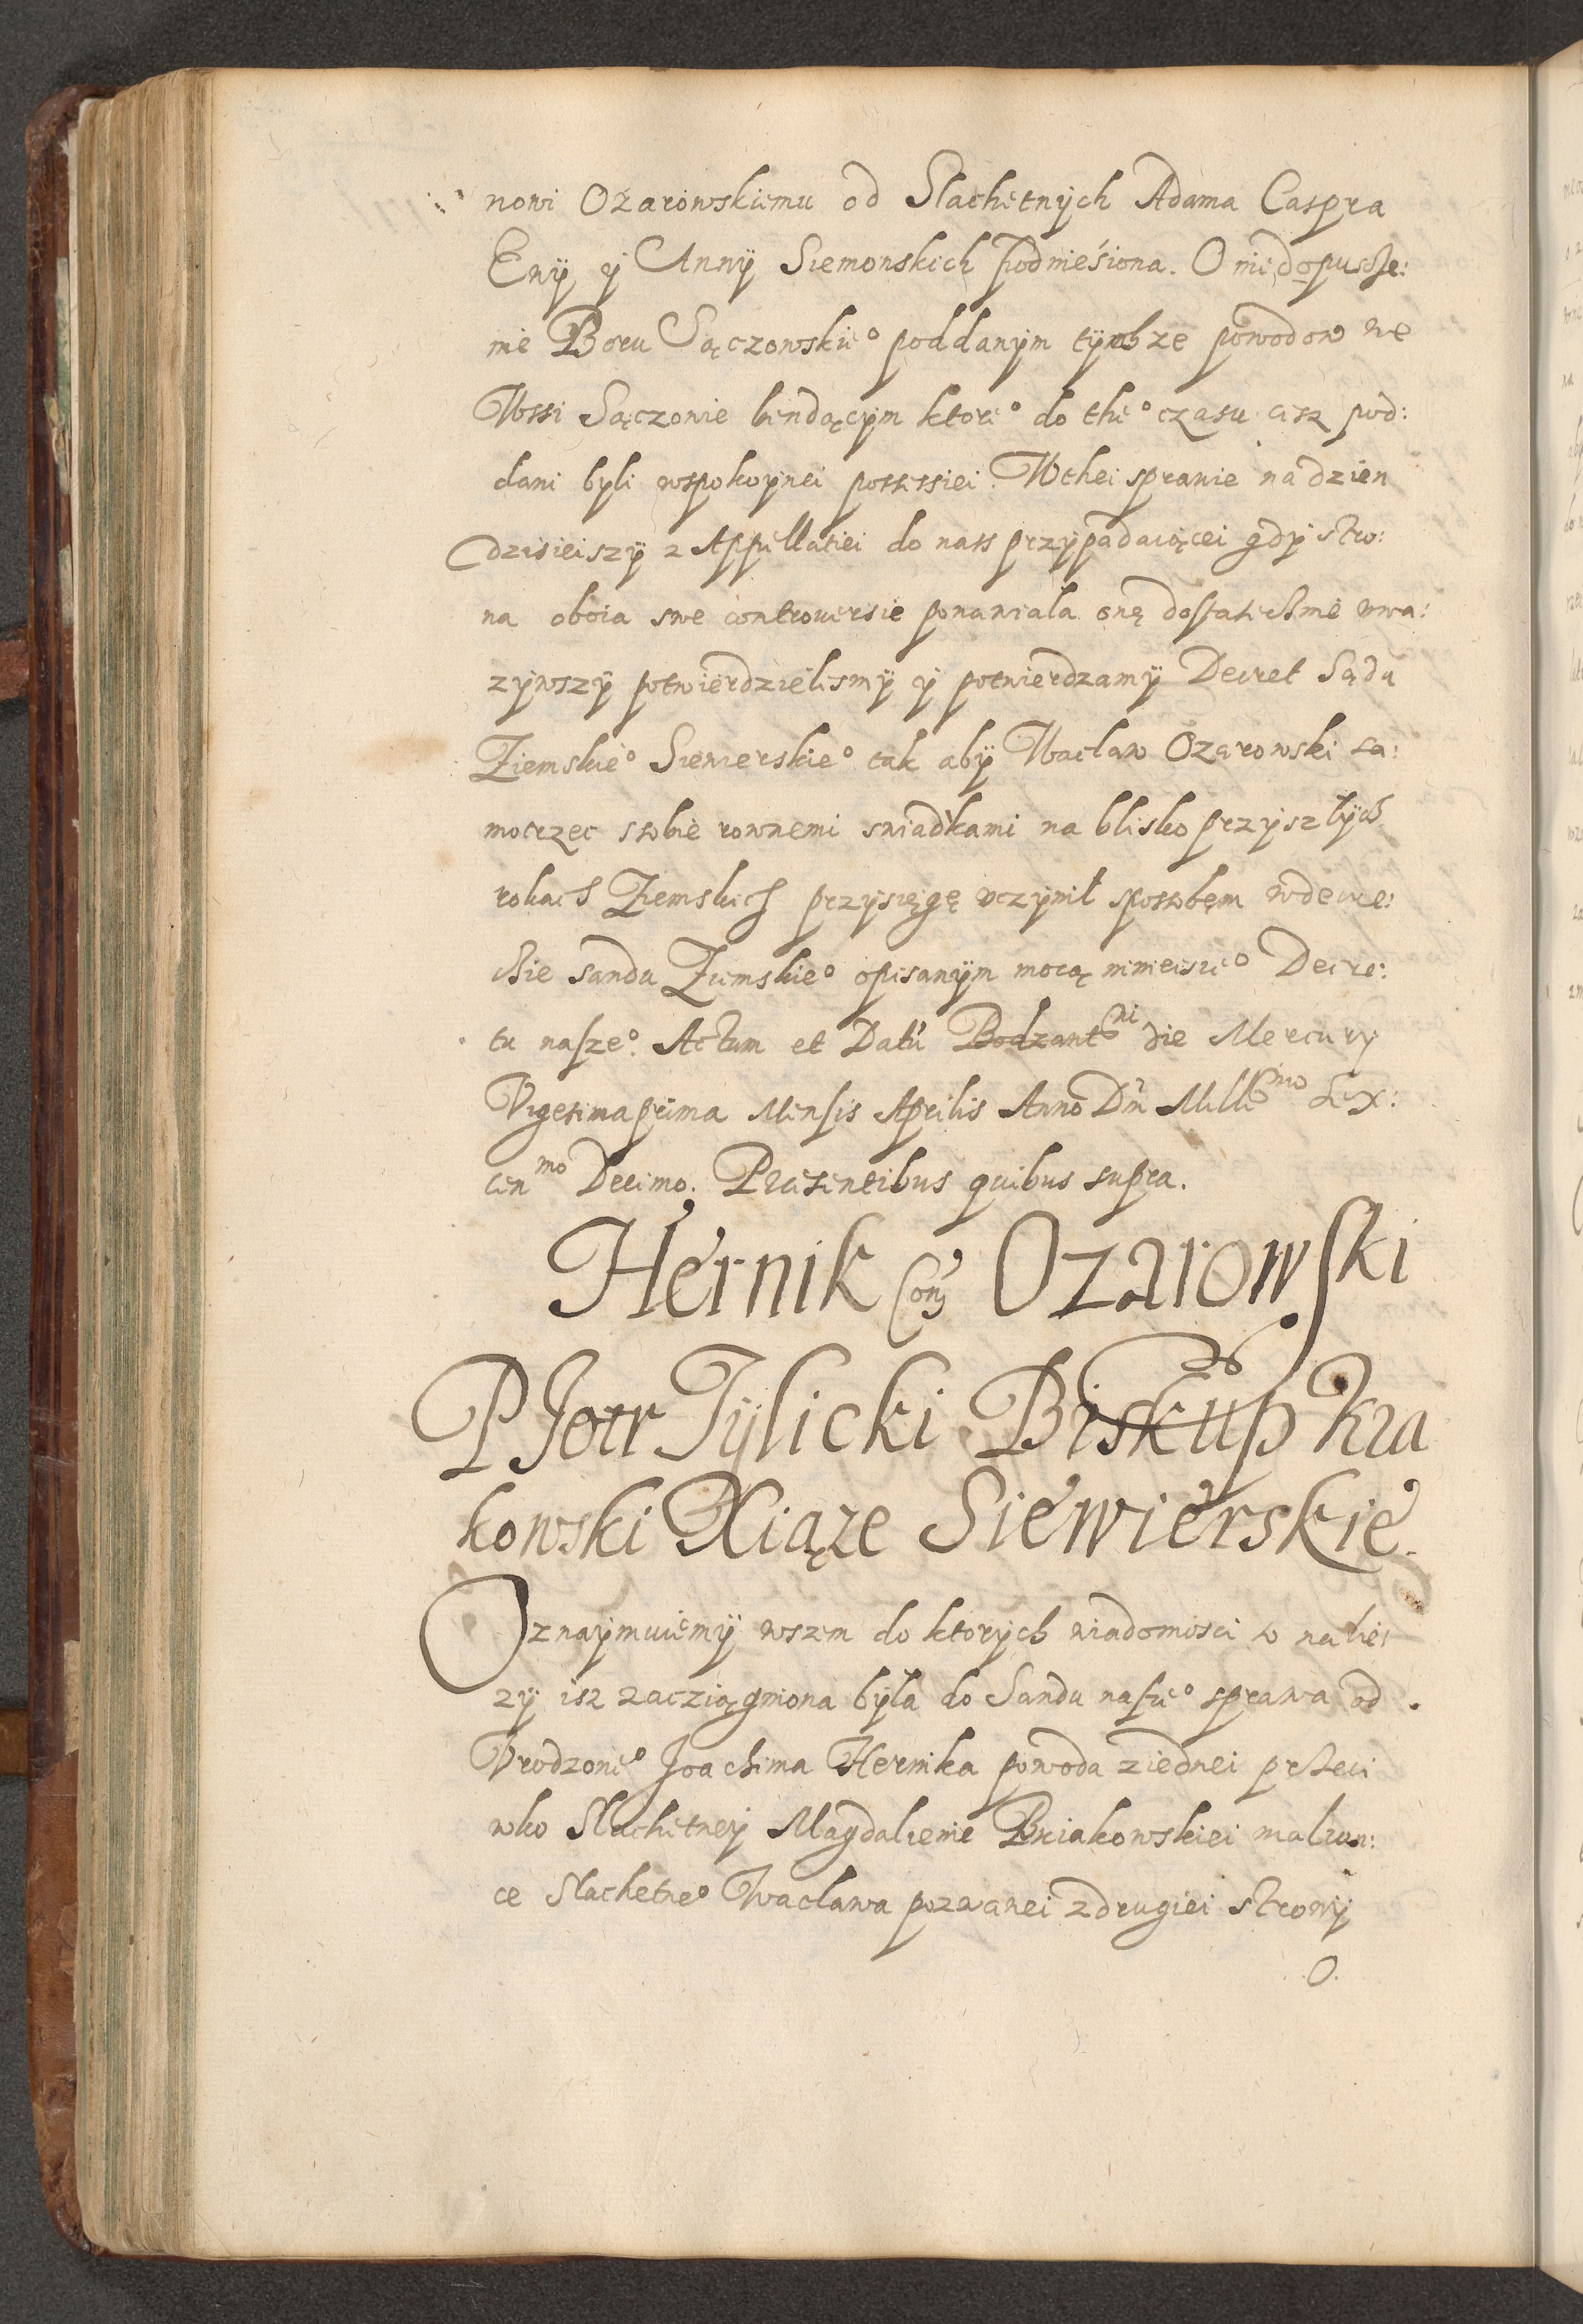 nowi Ozarowskiemu od Slachetnÿch Adama Caspra
Ewÿ ÿ Annÿ Siemonskich podnieśiona. O nie dopuscze:
nie Boru Sączowskie⁰ poddanÿm tÿmbze powodow we
Wssi Sączowie bendącÿm ktore⁰ do the⁰ czasu cisz pod:
dani byli wspokoÿnei possessiei. Wthei sprawie na dzien
dzisieiszÿ z Appellatiei do nass przÿpadaiącei gdÿ stro:
na oboia swe controuersie ponawiala onę dostatechnie vwa:
zÿwszÿ potwierdzielismÿ ÿ potwierdzamÿ Decret Sądu
Ziemskie⁰ Siewierskie⁰ tak abÿ Wacław Ozarowski sa:
motrzec sobie rownemi swiadkami na blisko przÿszłÿch
rokach Ziemskich przÿsięgę vczÿnił sposobem wdecre:
chie sandu Ziemskie⁰ opisanÿm mocą ninieisze⁰ Decre:
tu nasze⁰. Actum et Datū Bodzant^ni die Mercurÿ
Vigesima prima Mensis Aprilis Anno Dn̄i Mille^mo Sex:
cen^mo Decimo. Praesentibus quibus supra.
Hernik Con̄ Ozarowski
PJotr Tÿlicki Biskup Kra
kowski Xiąze Siewierskie.
Oznaÿmuiemÿ wszem do ktorÿch wiadomosci to nalie:
zÿ isz zacziągniona bÿła do Sandu nasze⁰ sprawa od
Vrodzone⁰ Joachima Hernika powoda ziednei przeci
wko Slachetneÿ Magdalienie Bniakowskiei malzon:
ce Slachetne⁰ Wacława pozwanei zdrugiei stronÿ
O.